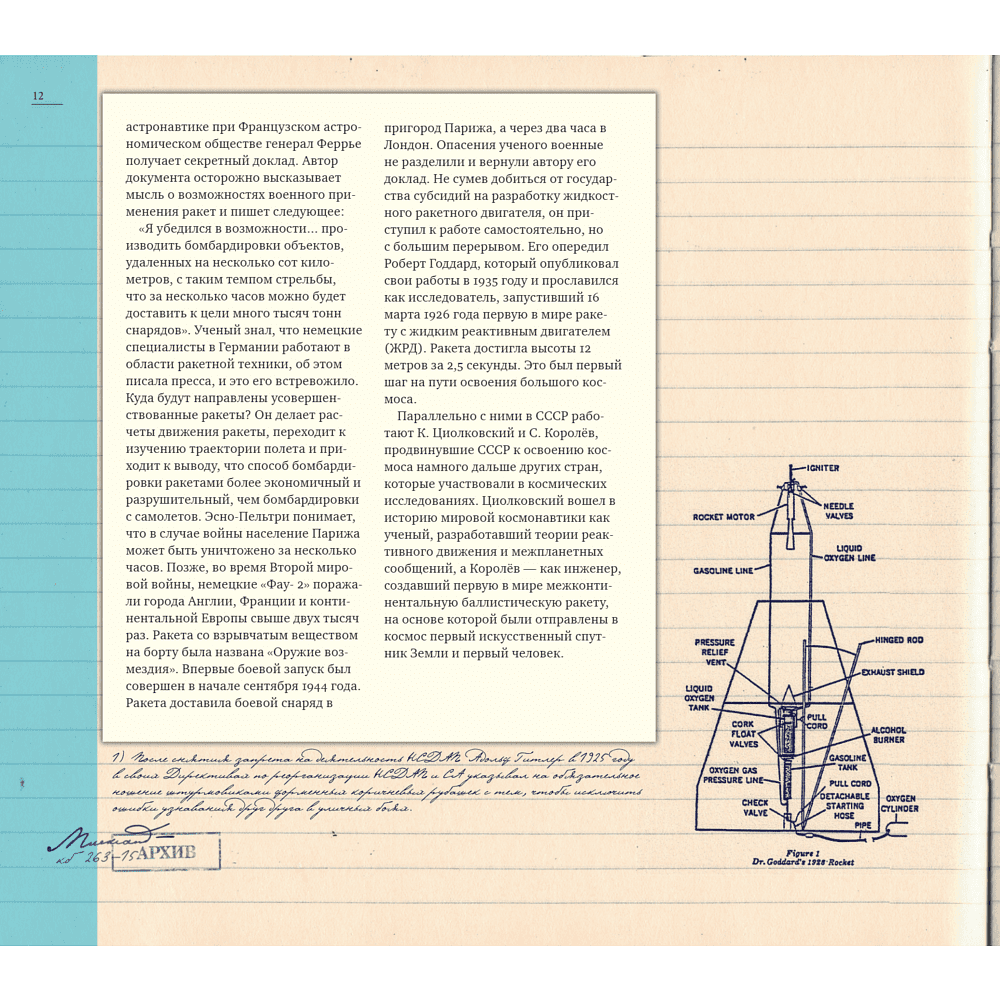 12
астронавтике при Французском астро-
номическом обществе генерал Феррье
получает секретный доклад. Автор
документа осторожно высказывает
мысль о возможностях военного при-
менения ракет и пишет следующее:
«Я убедился в возможности... про-
изводить бомбардировки объектов,
удаленных на несколько сот кило-
метров, с таким темпом стрельбы,
что за несколько часов можно будет
доставить к цели много тысяч тонн
снарядов». Ученый знал, что немецкие
специалисты в Германии работают в
области ракетной техники, об этом
писала пресса, и это его встревожило.
Куда будут направлены усовершен-
ствованные ракеты? Он делает рас-
четы движения ракеты, переходит к
изучению траектории полета и при-
ходит к выводу, что способ бомбарди-
ровки ракетами более экономичный и
разрушительный, чем бомбардировки
с самолетов. Эсно-Пельтри понимает,
что в случае войны население Парижа
может быть уничтожено за несколько
часов. Позже, во время Второй миро-
вой войны, немецкие «Фау- 2» поража-
ли города Англии, Франции и конти-
нентальной Европы свыше двух тысяч
раз. Ракета со взрывчатым веществом
на борту была названа «Оружие воз-
мездия». Впервые боевой запуск был
совершен в начале сентября 1944 года.
Ракета доставила боевой снаряд в
пригород Парижа, а через два часа в
Лондон. Опасения ученого военные
не разделили и вернули автору его
доклад. Не сумев добиться от государ-
ства субсидий на разработку жидкост-
ного ракетного двигателя, он при-
ступил к работе самостоятельно, но
с большим перерывом. Его опередил
Роберт Годдард, который опубликовал
свои работы в 1935 году и прославился
как исследователь, запустивший 16
марта 1926 года первую в мире раке-
ту с жидким реактивным двигателем
(ЖРД). Ракета достигла высоты 12
метров за 2,5 секунды. Это был первый
шаг на пути освоения большого кос-
моса.
Параллельно с ними в СССР рабо-
тают К. Циолковский и С. Королёв,
продвинувшие СССР к освоению кос-
моса намного дальше других стран,
которые участвовали в космических
исследованиях. Циолковский вошел в
историю мировой космонавтики как
ученый, разработавший теории реак-
тивного движения и межпланетных
сообщений, а Королёв — как инженер,
создавший первую в мире межконти-
нентальную баллистическую ракету,
на основе которой были отправлены в
космос первый искусственный спут-
ник Земли и первый человек.
IGNITER
NEEDLE
VALVES
ROCKET MOTOR
LIQUID
OXYGEN LINE
GASOLINE LINE
HINGED ROD
PRESSURE
RELIEF
VENT
EXHAUST SHIELD
LIQUID
OXYGEN
TANK
PULL
CORD
CORK
FLOAT
VALVES
ALCOHOL
BURNER
GASOLINE
TANK
OXYGEN GAS
PRESSURE LINE
PULL CORD
DETACHABLE
STARTING
HOSE
OXYGEN
CYLINDER
CHECK
VALVE
PIPE
Figure 1
Dr. Goddard's 1926 Rocket
1) После снятия запрета на деятельность НСДАП Адольф Гитлер в 1925 году
в своих Директивах по реорганизации НСДАП и СА указывал на обязательное
ношение штурмовиками форменных коричневых рубашек с тем, чтобы исключить
ошибки узнавания друг друга в уличных боях.
263-15
АРХИВ